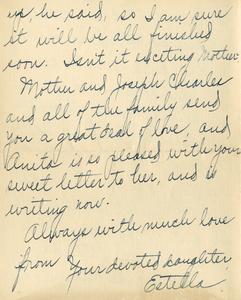 up, he said, so I am sure
it will be all finished
soon. Isn't it exciting Mother.
Mother and Joseph Charles
and all of the family send
you a great deal of love, and
Anita is so pleased with your
sweet letter to her, and is
writing now.
Always with much love
from Your devoted daughter,
Estella